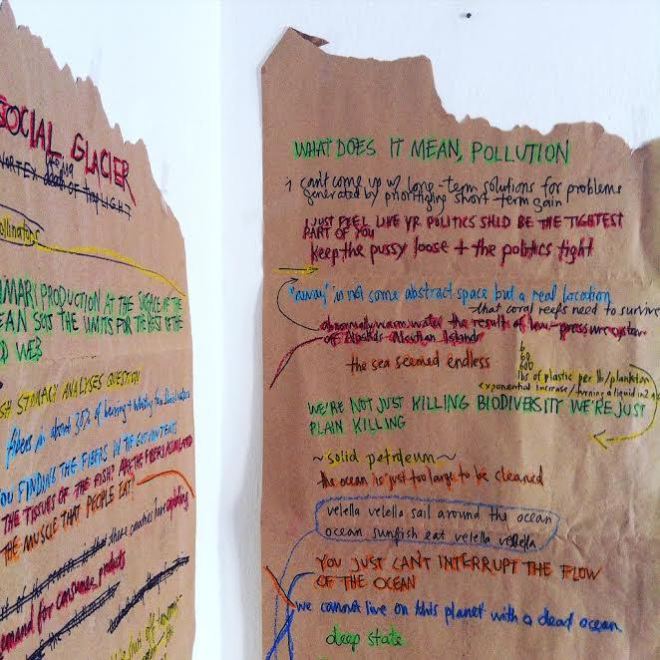 SOCIAL GLACIER
VORTEX
pollinators
PRODUCTION AT THE SURFACE OF THE
SETS THE LIMITS FOR THE REST OF THE
WEB
STOMACH ANALYSES QUESTION
fibers in about 30% of herring + whiting
YOU FINDING THE FIBERS IN THE
THE TISSUES OF THE FISH? ARE THE FIBERS
THE MUSCLE THAT PEOPLE EAT?
demand for consumer products
WHAT DOES IT MEAN, POLLUTION
i can't come up w/ long-term solutions for problems
generated by prioritizing short-term gain
I JUST FEEL LIKE YR POLITICS SHLD BE THE TIGHTEST
PART OF YOU
keep the pussy loose + the politics tight
"away" is not some abstract space but a real location
that coral reefs need to survive
abnormally warm water the results of low-pressure system
of Alaska's Aleutian Islands
the sea seemed endless
6
60
600
lbs of plastic per lb/plankton
exponential increase/turning a liquid in2 a
WE'RE NOT JUST KILLING BIODIVERSITY WE'RE JUST
PLAIN KILLING
~solid petroleum~
the ocean is just too large to be cleaned
velella velella sail around the ocean
ocean sunfish eat velella velella
YOU JUST CAN'T INTERRUPT THE FLOW
OF THE OCEAN
we cannot live on this planet with a dead ocean
deep state